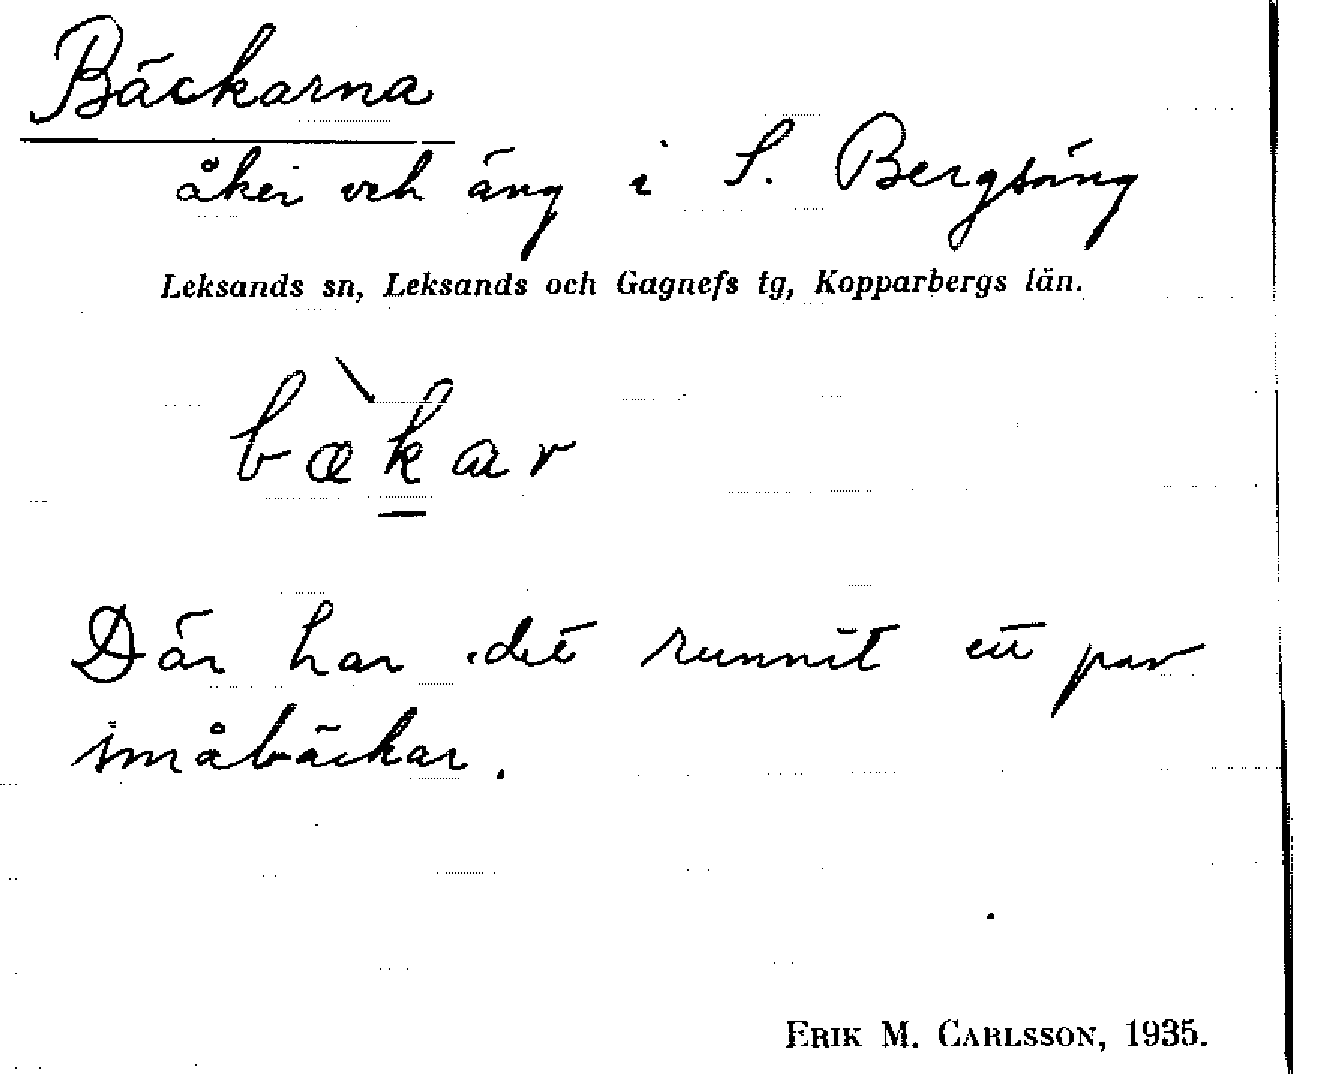 Bäckarna
åker och äng i S. Bergsäng
Leksands sn, Leksands och Gagnefs tg, Kopparbergs län.
bæ̀k̲ar
Där har det runnit ett par
småbäckar.
ERIK M. CARLSSON, 1935.